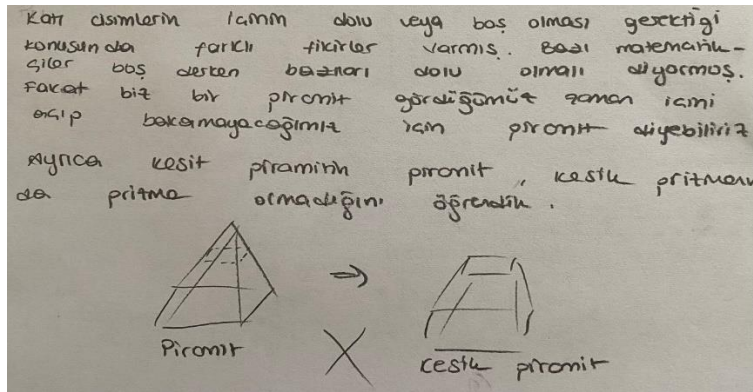 Katı cisimlerin içinin dolu veya boş olması gerektiği
konusunda farklı fikirler varmış. Bazı matematik-
çiler boş derken bazıları dolu olmalı diyormuş.
Fakat biz bir piramit gördüğümüz zaman içini
açıp bakamayacağımız için piramit diyebiliriz
Ayrıca kesik piramitin piramit, kesik pritmanın
da pritma olmadığını öğrendik.
Piramit
kesik piramit